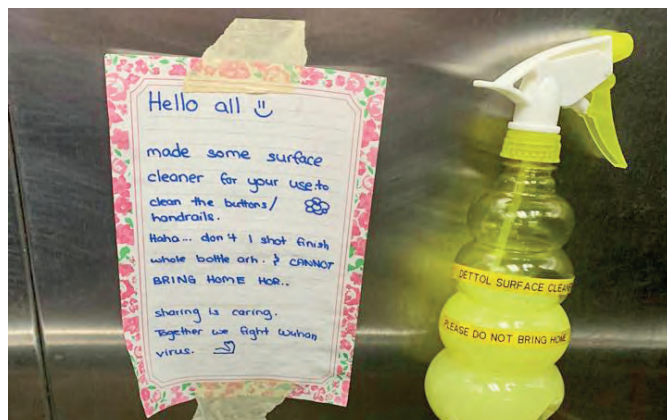 Hello all
made some surface
cleaner for your use to
clean the buttons/
handrails.
Haha... don't 1 shot finish
whole bottle arh. & CANNOT
BRING HOME HOR..
sharing is caring.
Together we fight wuhan
virus.
DETTOL SURFACE CLEANE
PLEASE DO NOT BRING HOME